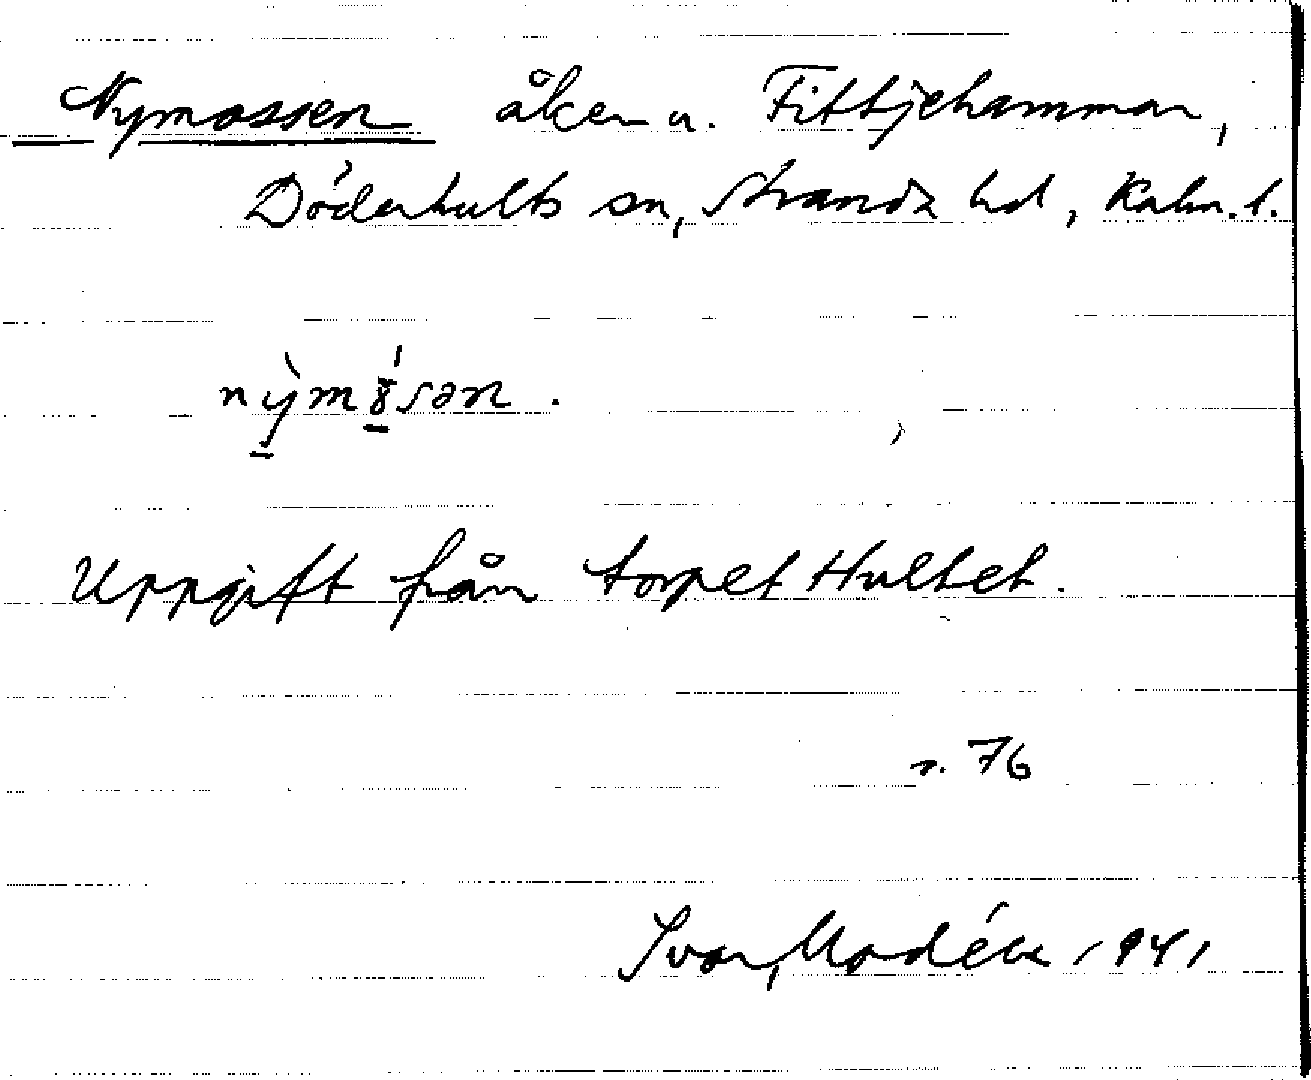 Nymossen åker u. Fittjehammar,
Döderhults sn, Strands hd, Kalm. l.
nỳmɞ́sən.
Uppgift från torpet Hultet.
s. 76
Ivar Modéer 1941